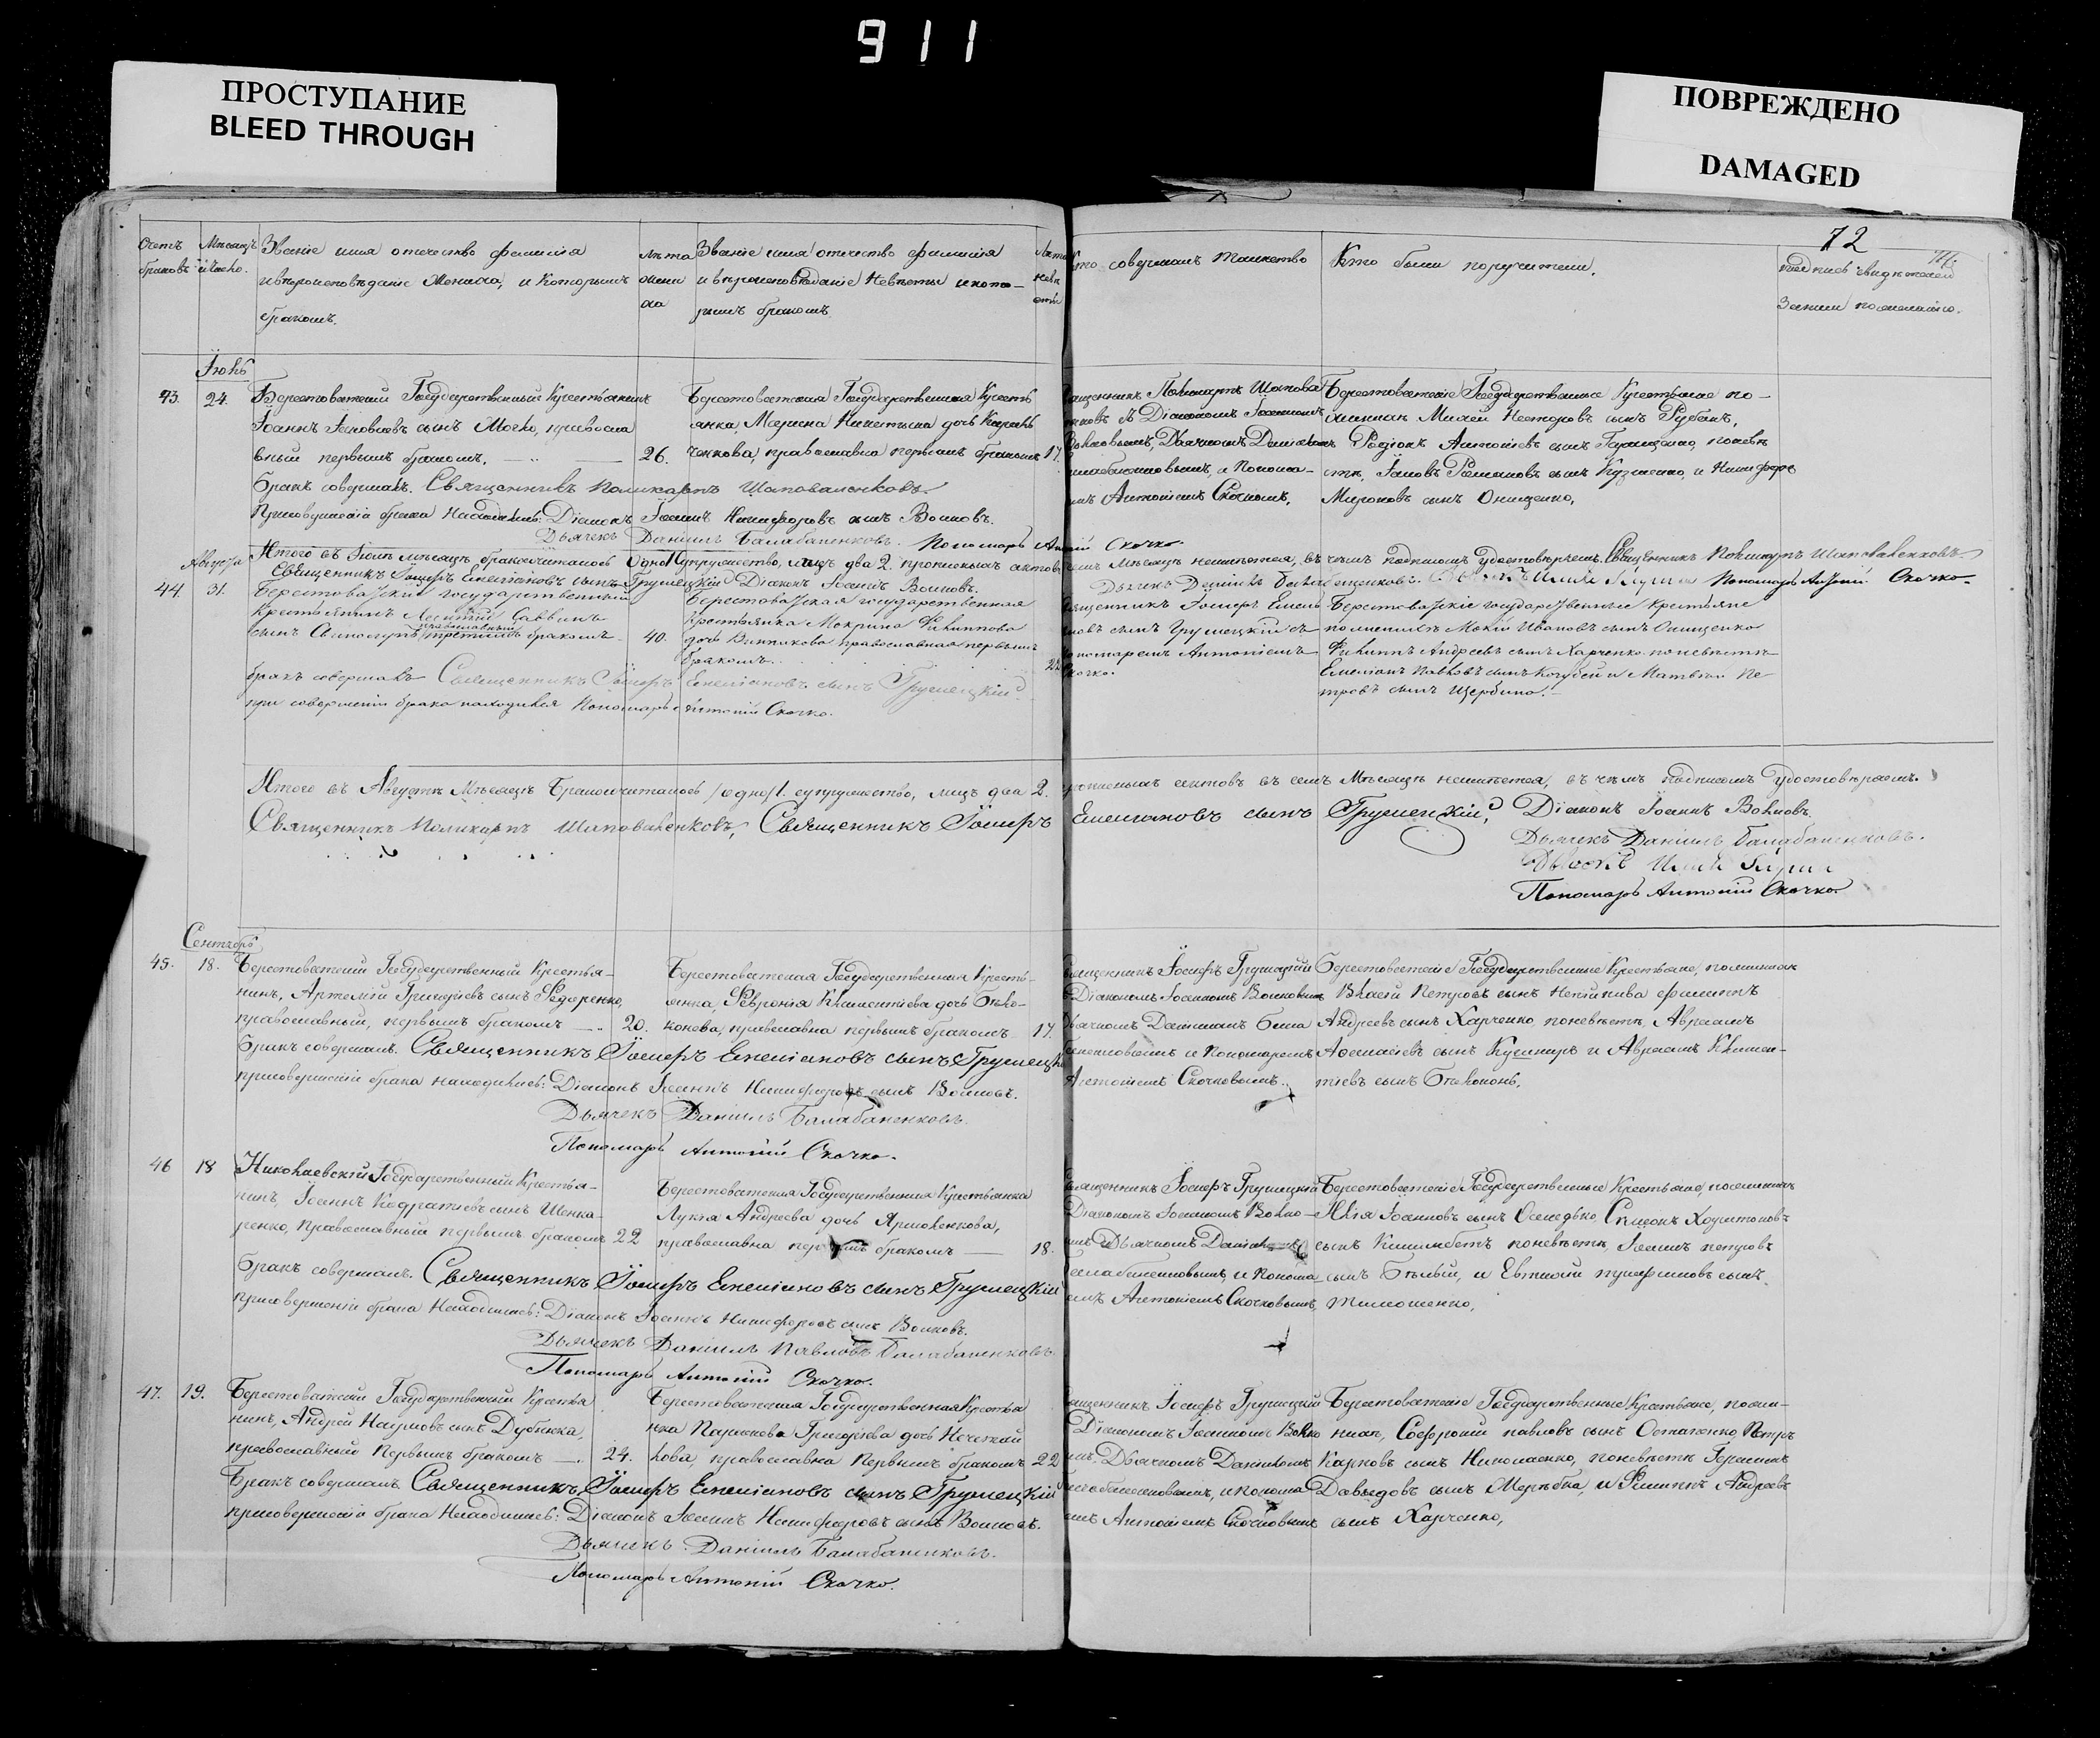 911
ПРОСТУПАНИЕ
BLEED THROUGH
ПОВРЕЖДЕНО
DAMAGED
72
Счетъ браковъ
Мѣсяцъ и число.
Званіе имя отечество фамилія
и вѣроисповѣданіе Жениха, и которымъ
бракомъ.
лѣта жени ха
Званіе имя отечество фамилія
и вѣроисповѣданіе Невѣсты и кото-
рымъ бракомъ.
Лѣта невѣ сты
Кто совершалъ таинство
Кто были поручители.
подпись свидѣтелей
записи по желанію.
Іюнь
43. 24.
Берестоватский Государственный Крестьянинъ
Іоаннъ Яковлевъ сынъ Мочко, правосла
вный первымъ бракомъ. 26.
Берестоватская Государственная Кресть
янка, Марина Никитина дочь Кирич
ченкова, православна первымъ бракомъ 17.
Священникъ Поликарпъ Шапова
ленковъ съ Діакономъ Іоанномъ
Волковымъ, Дьячкомъ Данииломъ
Балабаненковымъ, и Понома-
ремъ Антоніемъ Скочкомъ.
Берестоватские Государственные Крестьяне по-
женихѣ Михей Несторовъ сынъ Рубанъ,
Родіонъ Антоніевъ сынъ Геращенко, по невѣ
стѣ, Іаковъ Романовъ сынъ Кузменко, и Никифоръ
Мироновъ сынъ Онищенко,
Бракъ совершалъ. Священникъ Поликарпъ Шаповаленковъ.
При совершеніи брака находились: Діаконъ Іоаннъ Никифоровъ сынъ Волковъ.
Дьячекъ Даніилъ Балабаненковъ. Пономарь Антоній Скочко.
Итого въ Іюнѣ мѣсяцѣ бракосочитаносъ Одно 1 супружество, лицъ два 2. прописныхъ актовъ въ семъ мѣсяцѣ неимѣется, въ чемъ подписомъ удостовѣряемъ. Священникъ Поликарпъ Шаповаленковъ.
Священникъ Іосифъ Емеліановъ сынъ Грушецкій Діаконъ Іоаннъ Волковъ. Дьячекъ Даніилъ Балабаненковъ. Пономарь Антоній Скочко.
Августа
44. 31.
Берестоватскій государственный
крестьянинъ Леонтій Саввинъ
православный
третимъ бракомъ 40.
Берестоватская государственная
крестьянка Мокрина Филиппова
дочь Винникова православная первымъ
бракомъ. 22
Священникъ Іосифъ Емелья
новъ сынъ Грушецкій съ
пономаремъ Антоніемъ
Скочко.
Берестоватскіе государственные крестьяне
по женихѣ Мокій Ивановъ сынъ Онищенко
Филиппъ Андреевъ сынъ Харченко. по невѣстѣ
Емеліанъ Павловъ сынъ Кочубей и Матвѣй Пе
тровъ сынъ Щербина.
бракъ совершалъ Священникъ Іосифъ Емеліановъ сынъ Грушецкій
при совершеніи брака находился Пономарь Антоній Скочко.
Итого въ Августѣ Мѣсяцѣ Бракосочитаносъ /одно/1. супружество, лицъ два 2. прописныхъ актовъ въ семъ Мѣсяцѣ неимѣется, въ чемъ подписомъ удостовѣряемъ.
Священникъ Поликарпъ Шаповаленковъ, Священникъ Іосифъ Емеліановъ сынъ Грушецкій, Діаконъ Іоаннъ Волковъ.
Дьячекъ Даніилъ Балабаненковъ.
Пономарь Антоній Скочко.
Сентябрь
45. 18.
Берестоватский Государственный Крестья-
нинъ, Артемій Григорьевъ сынъ Федоренко,
православный, первымъ бракомъ 20.
Берестоватская Государственная Кресть-
янка, Февронія Климентіева дочь Бѣло-
конева, православна первымъ бракомъ 17.
Священникъ Іосифъ Грушецкій
съ Діакономъ Іоанномъ Волковымъ
Дьячкомъ Данииломъ Бала
баненковымъ и Пономаремъ
Антоніемъ Скочковымъ.
Берестоватские Государственные Крестьяне, по женихѣ
Власій Петровъ сынъ Непійпива Филиппъ
Андреевъ сынъ Харченко, по невѣстѣ, Авраамъ
Афанасіевъ сынъ Кушниръ и Авраамъ Климен-
тіевъ сынъ Бѣлоконь.
Бракъ совершалъ. Священникъ Іосифъ Емеліановъ сынъ Грушецкій
при совершеніи брака находились: Діаконъ Іоаннъ Никифоровъ сынъ Волковъ.
Дьячекъ Даніилъ Балабаненковъ.
Пономарь Антоній Скочко.
46 18
Николаевскій Государственный Крестья-
нинъ, Іоаннъ Кодратіевъ сынъ Шенка-
ренко, православный первымъ бракомъ 22
Берестоватская Государственная Крестьянка
Лукія Андреева дочь Ярмоленкова,
православна первымъ бракомъ 18.
Священникъ Іосифъ Грушецкій
Діакономъ Іоанномъ Волко-
вымъ Дьячкомъ Данииломъ
Балабаненковымъ, и Понома-
ремъ Антоніемъ Скочковымъ,
Берестоватские Государственные Крестьяне, по женихѣ
Илія Іоанновъ сынъ Оселедько, Симеонъ Харитоновъ
сынъ Кишимбетъ по невѣстѣ, Іоаннъ Петровъ
сынъ Бѣлый, и Евтихій сынъ
Тимошенко,
Бракъ совершалъ. Священникъ Іосифъ Емеліановъ сынъ Грушецкій
при совершеніи брака Находились: Діаконъ Іоаннъ Никифоровъ сынъ Волковъ.
Дьячекъ Даніилъ Павловъ Балабаненковъ.
Пономарь Антоній Скочко.
47. 19.
Берестоватский Государственный Крестья
нинъ, Андрей Наумовъ сынъ Дубняка,
православный Первымъ бракомъ 24.
Берестоватская Государственная Крестья
нка Параскева Григорьева дочь Нечитай
лова, православна Первымъ бракомъ 22
Священникъ Іосифъ Грушецкій
Діакономъ Іоанномъ Волко
вымъ, Дьячкомъ Данииломъ
Балабаненковымъ, и Понома
ремъ Антоніемъ Скочковымъ
Берестоватские Государственные Крестьяне, по же-
нихѣ, Софроній Павловъ сынъ Остапенко, Петръ
Карповъ сынъ Николаенко, по невѣстѣ Герасимъ
Давыдовъ сынъ Мережка, и Филиппъ Андреевъ
сынъ Харченко,
Бракъ совершалъ Священникъ, Іосифъ Емеліановъ сынъ Грушецкій
при совершеніи брака Находились: Діаконъ Іоаннъ Никифоровъ сынъ Волковъ.
Дьячекъ. Даніилъ Балабаненковъ.
Пономарь Антоній Скочко.